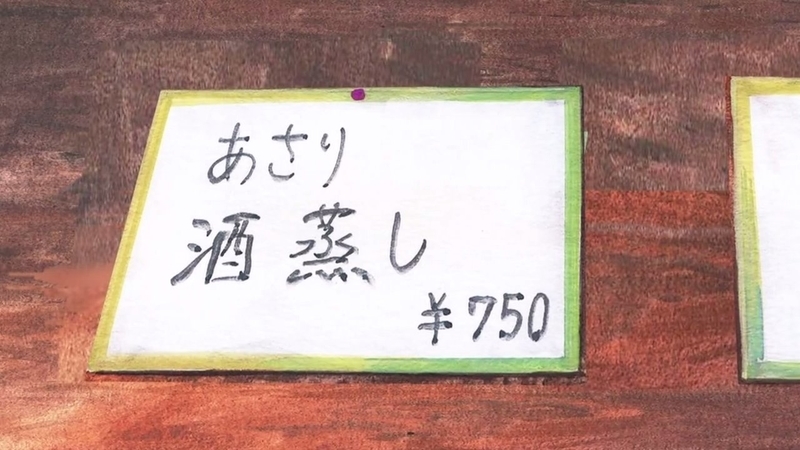 あさり
酒蒸し
¥750